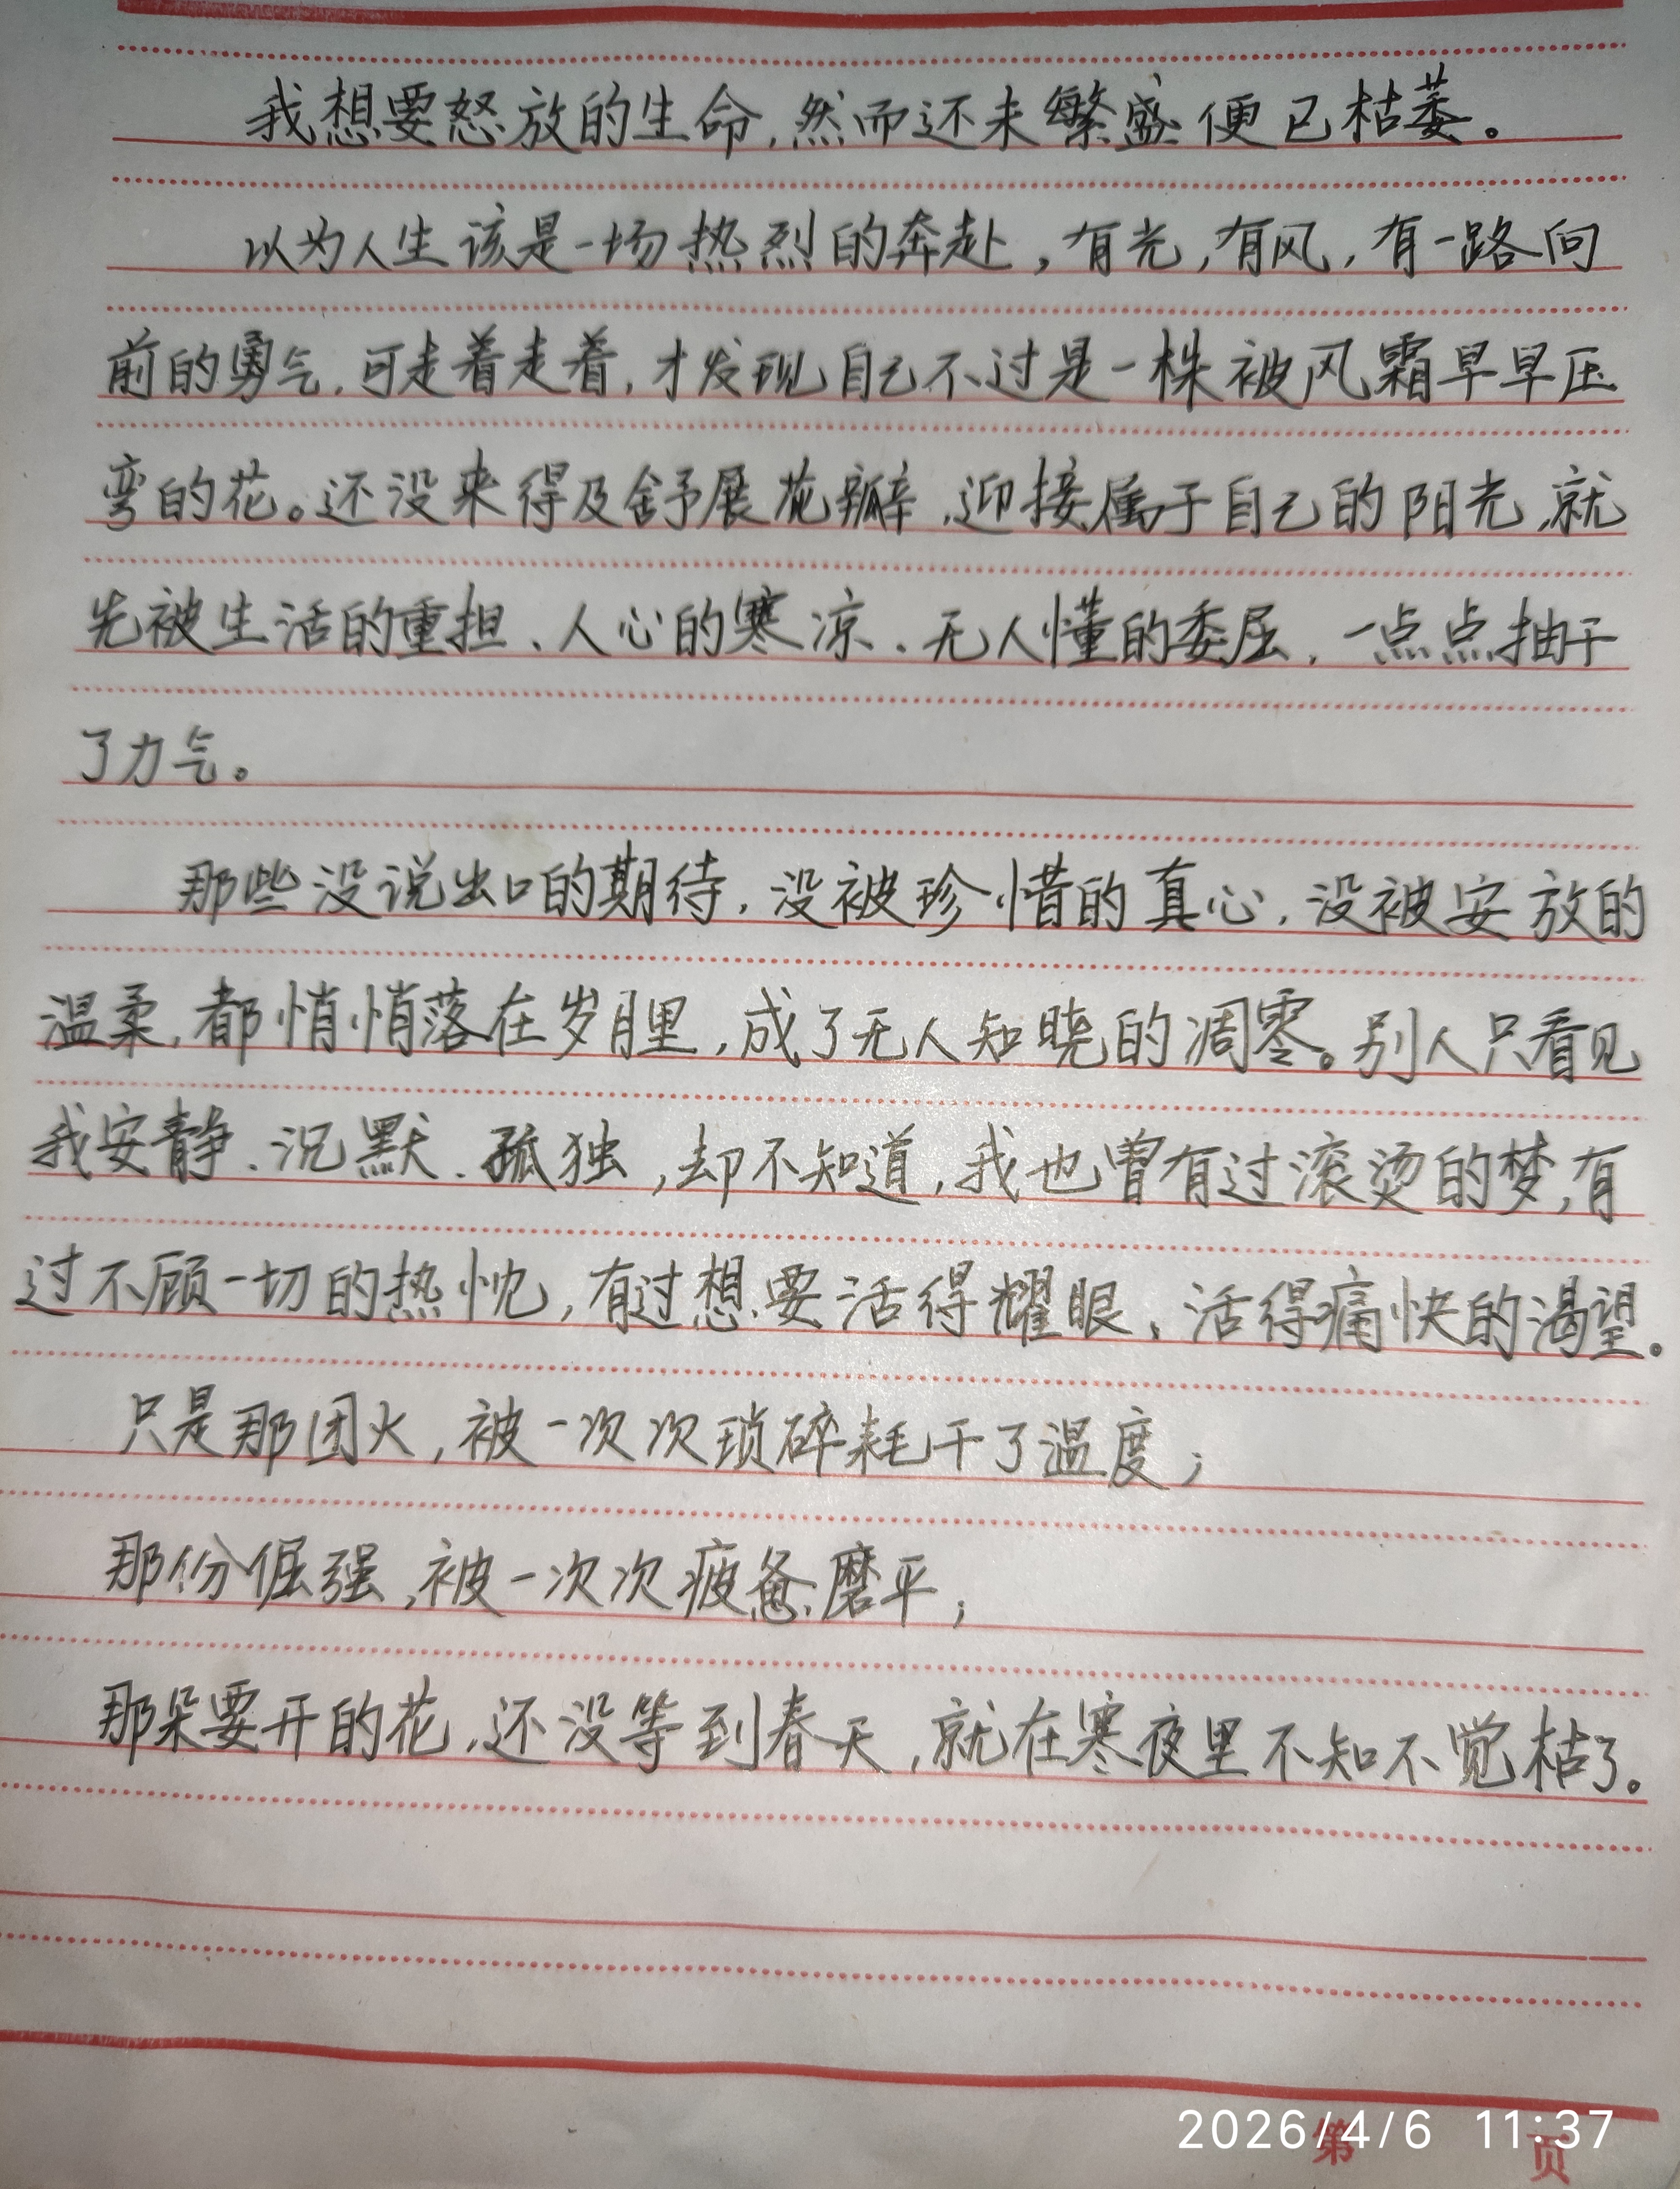 我想要怒放的生命,然而还未繁盛便已枯萎。
以为人生该是一场热烈的奔赴,有光,有风,有一路向
前的勇气,可走着走着,才发现自己不过是一株被风霜早早压
弯的花。还没来得及舒展花瓣,迎接属于自己的阳光,就
先被生活的重担、人心的寒凉、无人懂的委屈,一点点抽干
了力气。
那些没说出口的期待,没被珍惜的真心,没被安放的
温柔,都悄悄落在岁月里,成了无人知晓的凋零。别人只看见
我安静、沉默、孤独,却不知道,我也曾有过滚烫的梦,有
过不顾一切的热忱,有过想要活得耀眼、活得痛快的渴望。
只是那团火,被一次次琐碎耗干了温度;
那份倔强,被一次次疲惫磨平;
那朵要开的花,还没等到春天,就在寒夜里不知不觉枯了。
2026/4/6 11:37
第 页